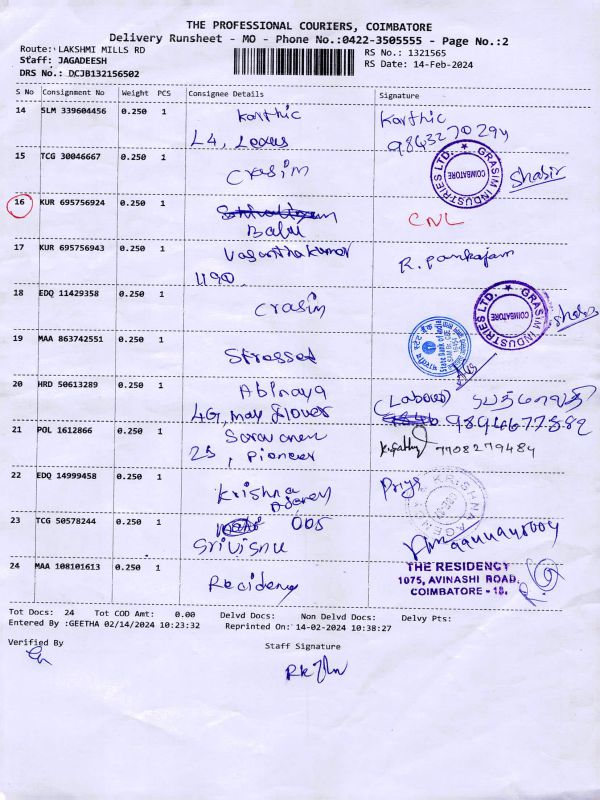 THE PROFESSIONAL COURIERS, COIMBATORE
Delivery Runsheet - MO - Phone No.:0422-3505555 - Page No.:2
Route: LAKSHMI MILLS RD
RS No.: 1321565
Staff: JAGADEESH
RS Date: 14-Feb-2024
DRS No.: DCJB132156502
S No Consignment No Weight PCS Consignee Details Signature
14 SLM 339604456 0.250 1 Karthic Karthic
L4, Lexus
15 TCG 30046667 0.250 1 Crasim
GRASIM INDUSTRIES LTD. ★ COIMBATORE Shabir
16 KUR 695756924 0.250 1
Babu CNL
17 KUR 695756943 0.250 1 Vasanthakumar R. Pankajam
1190
18 EDQ 11429358 0.250 1 Crasim
GRASIM INDUSTRIES LTD. ★ COIMBATORE
19 MAA 863742551 0.250 1 Stressed
State Bank of India
20 HRD 50613289 0.250 1 Abinaya (Labour)
4G, may flower 9894677382
21 POL 1612866 0.250 1 Saravanan 7708279484
2S, Pioneer
22 EDQ 14999458 0.250 1 Krishna Priya
Agency KRISHNA AGEN
23 TCG 50578244 0.250 1 005
Srivisnu
24 MAA 108101613 0.250 1 Recidency
THE RESIDENCY
1075, AVINASHI ROAD,
COIMBATORE - 18.
Tot Docs: 24 Tot COD Amt: 0.00 Delvd Docs: Non Delvd Docs: Delvy Pts:
Entered By :GEETHA 02/14/2024 10:23:32 Reprinted On: 14-02-2024 10:38:27
Verified By
Staff Signature